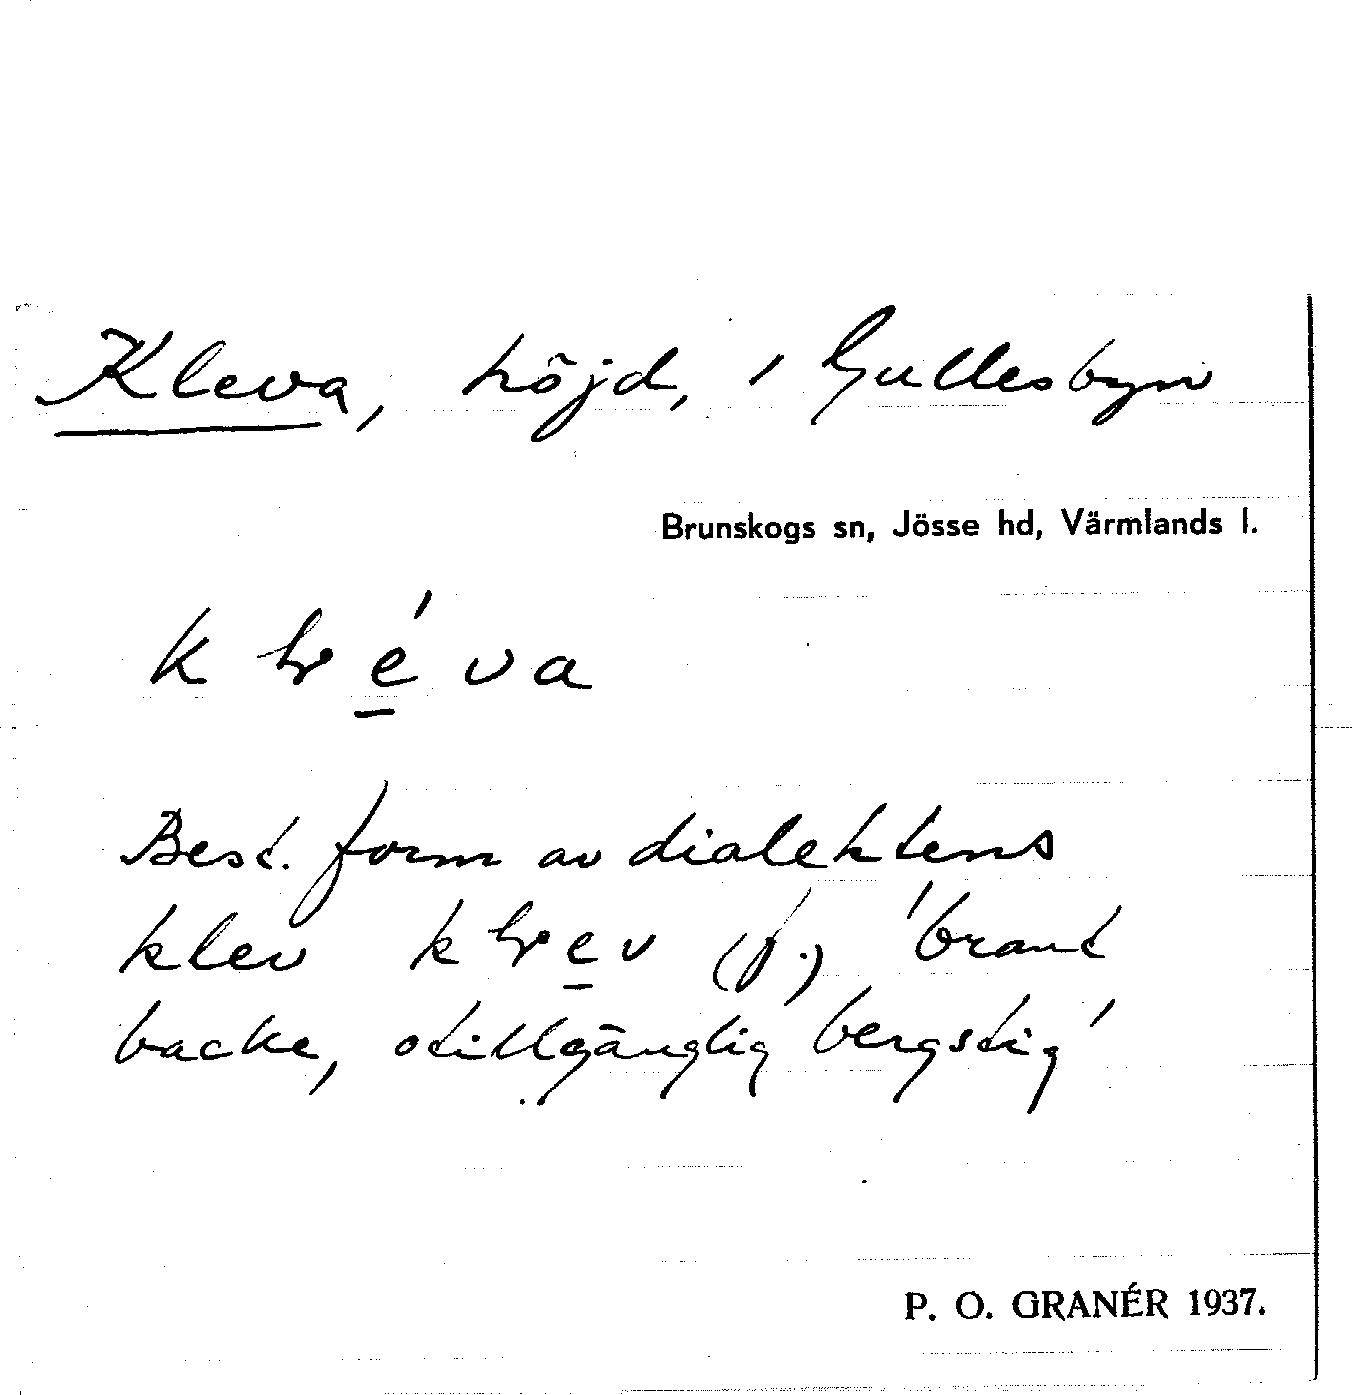 Kleva, höjd, i Gullesbyn
Brunskogs sn, Jösse hd, Värmlands l.
Best. form av dialektens
klev (f.) 'brant
backe, otillgänglig bergstig'
P. O. GRANÉR 1937.